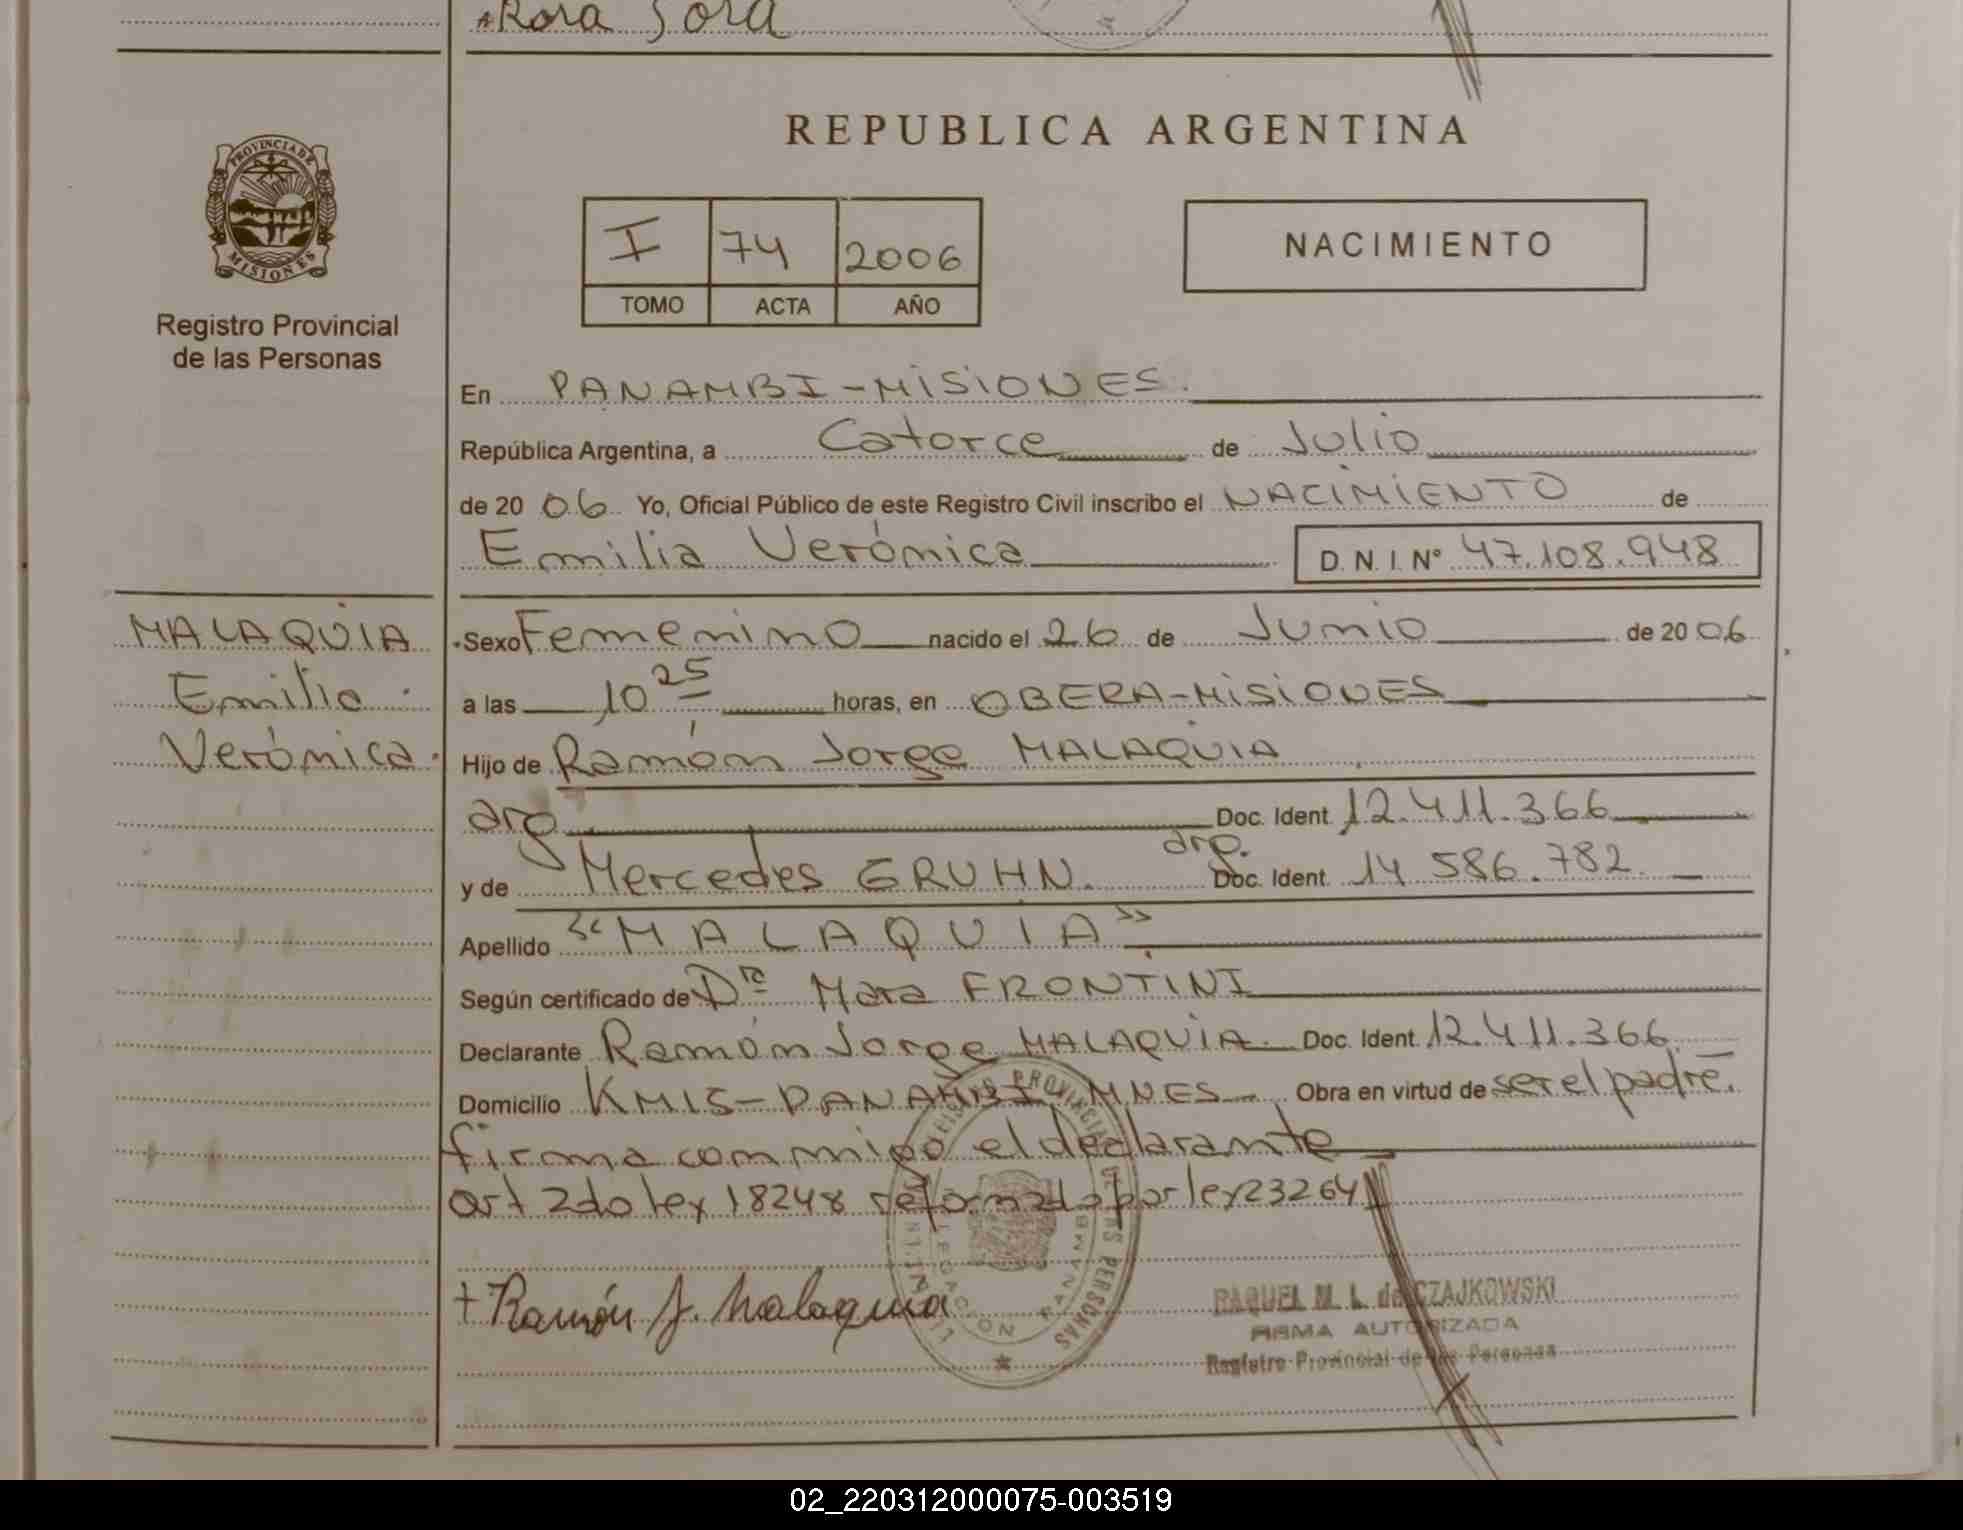 Rosa Sosa
REPUBLICA ARGENTINA
PROVINCIA DE
MISIONES
Registro Provincial
de las Personas
I 74 2006
TOMO ACTA AÑO
NACIMIENTO
En PANAMBI-MISIONES.
República Argentina, a Catorce de Julio
de 20 06 Yo, Oficial Público de este Registro Civil inscribo el NACIMIENTO de
Emilia Verónica D.N.I. Nº 47.108.948
MALAQUIA
Emilia
Verónica.
Sexo Femenino nacido el 26 de Junio de 20 06
a las 10 25 horas, en OBERA-MISIONES
Hijo de Ramón Jorge MALAQUIA
arg. Doc. Ident. 12.411.366
y de Mercedes GRUHN. arg. Doc. Ident. 14 586.782.
Apellido "MALAQUIA"
Según certificado de Dra Mara FRONTINI
Declarante Ramón Jorge MALAQUIA. Doc. Ident. 12.411.366.
Domicilio KM15-PANAMBI MNES Obra en virtud de ser el padre.
firma conmigo el declarante
art 2do ley 18248 reformada por ley 23264
+Ramón J. Malaquia
PROVINCIAL
DE LAS PERSONAS
DELEGACIÓN PANAMBI
RAQUEL M. L. de CZAJKOWSKI
FIRMA AUTORIZADA
Registro Provincial de las Personas
02_220312000075-003519